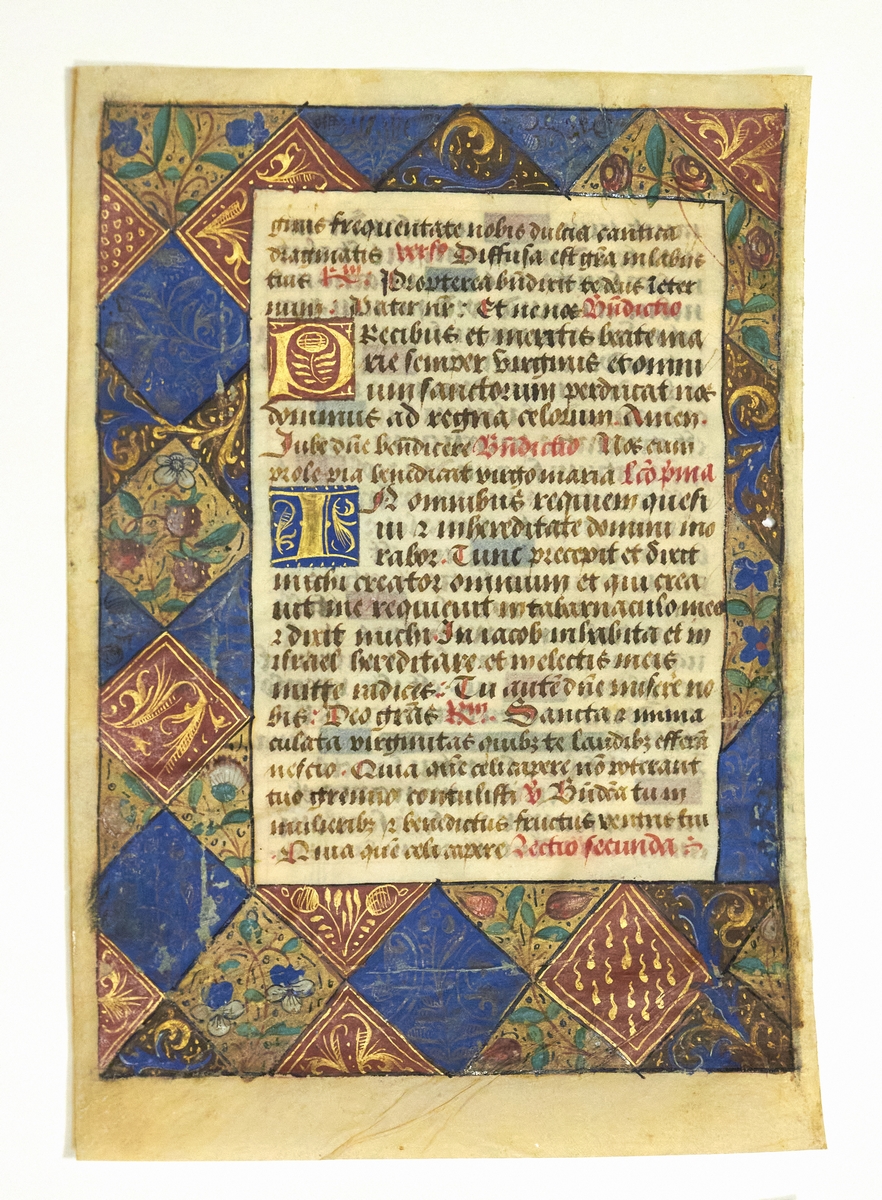 ginis frequentate nobis dulcia cantica
dragmatis vers9 Diffusa est gr̃a in labiis
tuis R̃m. Propterea bñdixit te deus ĩeter
num. Pater nr̃: Et ne nos Bñdictio
PRecibus et meritis beate ma
rie semper virginis et omni
um sanctorum perducat nos
dominus ad regna celorum. Amen.
Iube dñe beñdicere Bñdictio Nos cum
prole pia benedicat virgo maria lcõ p̃ma
IN omnibus requiem quesi
ui ⁊ in hereditate domini mo
rabor. Tunc precepit et dixit
michi creator omnium et qui crea
uit me requieuit in tabarnaculo meo
⁊ dixit michi In iacob inhabita et in
israel hereditare. et in electis meis
mitte radices: Tu autẽ dñe miserẽ no
bis: Deo gr̃as R̃m. Sancta ⁊ imma
culata virginitas quibꝫ te laudibꝫ efferã
nescio. Quia quẽ celi capere nõ poterant
tuo gremio contulisti ℣ Bñdc̃a tu in
mulieribꝫ ⁊ benedictus fructus ventris tui
Quia quẽ celi capere Lectio secunda